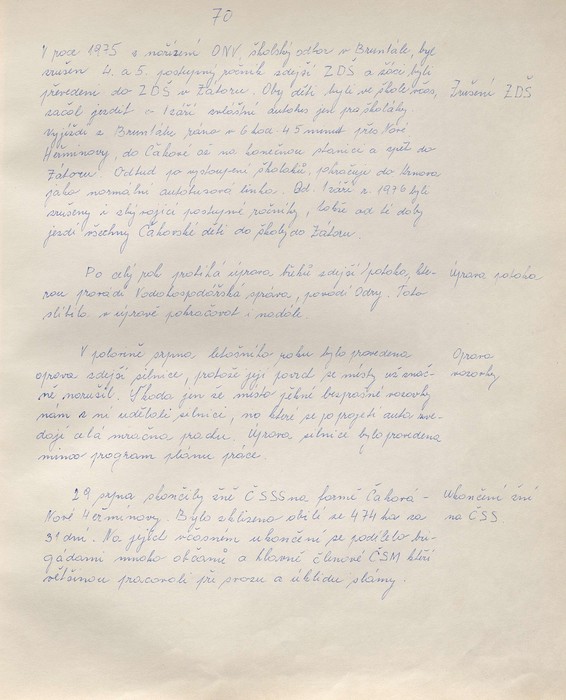 70
V roce 1975 z nařízení ONV, školský odbor v Bruntále, byl
zrušen 4. a 5. postupný ročník zdejší ZDŠ a žáci byli
převedeni do ZDŠ v Zátoru. Aby děti byly ve škole včas, Zrušení ZDŠ
začal jezdit od 1 září zvláštní autobus jen pro školáky.
Vyjíždí z Bruntálu ráno v 6 hod 45 minut přes Nové
Heřminovy, do Čakové až na konečnou stanici a zpět do
Zátoru. Odtud po vystoupení školáků, pokračuje do Krnova
jako normální autobusová linka. Od 1 září r. 1976 byly
zrušeny i zbývající postupné ročníky, takže od té doby
jezdí všechny Čakovské děti do školy do Zátoru.
Po celý rok probíhá úprava břehů zdejší potoka, kte- Úprava potoka
rou provádí Vodohospodářská správa, povodí Odry. Tato
slíbila v úpravě pokračovat i nadále.
V polovině srpna letošního roku byla provedena Oprava
oprava zdejší silnice, protože její povrch se místy už znač- vozovky
ně narušil. Škoda jen že místo pěkné bezprašné vozovky
nám z ní udělali silnici, na které se po projetí auta zve-
dají celá mračna prachu. Úprava silnice byla provedena
mimo program plánu práce.
29 srpna skončily žně ČSSS na farmě Čaková - Ukončení žní
Nové Heřminovy. Bylo sklizeno obilí ze 474 ha za na ČSS
31 dní. Na jejich včasném ukončení se podílelo bri-
gádami mnoho občanů a hlavně členové ČSM kteří
většinou pracovali při svozu a úklidu slámy.